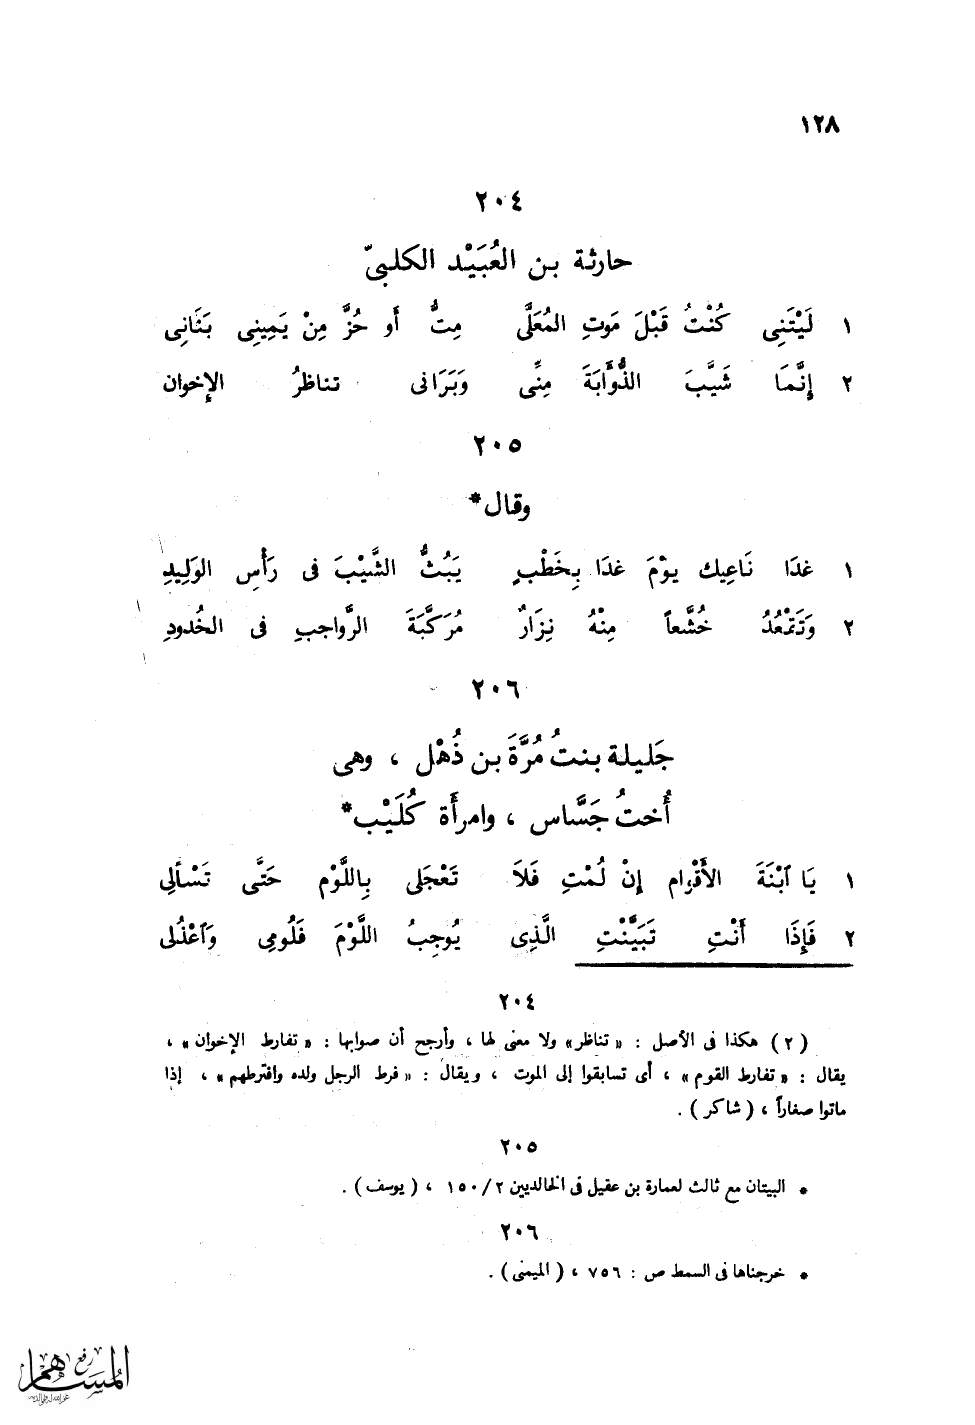 ١٢٨
٢٠٤
حارثة بن العُبَيْد الكلبىّ
١ لَيْتَنِى كُنْتُ قَبْلَ مَوتِ المُعَلَّى مِتُّ أَو حُزَّ مِنْ يَمِينِى بَنَانِى
٢ إِنَّمَا شَيَّبَ الذُّؤَابَةَ مِنِّى وَبَرَانى تناظرُ الإخوان
٢٠٥
وقال*
١ غدَا نَاعِيك يوْمَ غدَا بِخَطْبٍ يَبُثُّ الشَّيْبَ فى رَأْسِ الوَلِيدِ
٢ وَتَقْعُدُ خُشَّعاً مِنْهُ نِزَارٌ مُرَكَّبَةَ الرَّواجبِ فى الخُدودِ
٢٠٦
جَليلة بنتُ مُرَّةَ بن ذُهْل ، وهى
أُختُ جَسَّاس ، وامرأَة كُلَيْب*
١ يَا ٱبْنَةَ الأَقْوَام إِنْ لُمْتِ فَلاَ تَعْجَلى بِاللَّوْم حَتَّى تَسْألِى
٢ فَإِذَا أَنْتِ تَبَيَّنْتِ الَّذِى يُوجِبُ اللَّوْمَ فَلُومِى وَٱعْذُلى
٢٠٤
(٢) هكذا فى الأصل : « تناظر» ولا معنى لها ، وأرجح أن صوابها : « تفارط الإخوان » ،
يقال : « تفارط القوم » ، أى تسابقوا إلى الموت ، ويقال : « فرط الرجل ولده وافترطهم » ، إذا
ماتوا صغاراً ، (شاكر) .
٢٠٥
* البيتان مع ثالث لعمارة بن عقيل فى الخالديين ٢/١٥٠ ، (يوسف) .
٢٠٦
* خرجناها فى السمط ص : ٧٥٦ ، (الميمنى) .